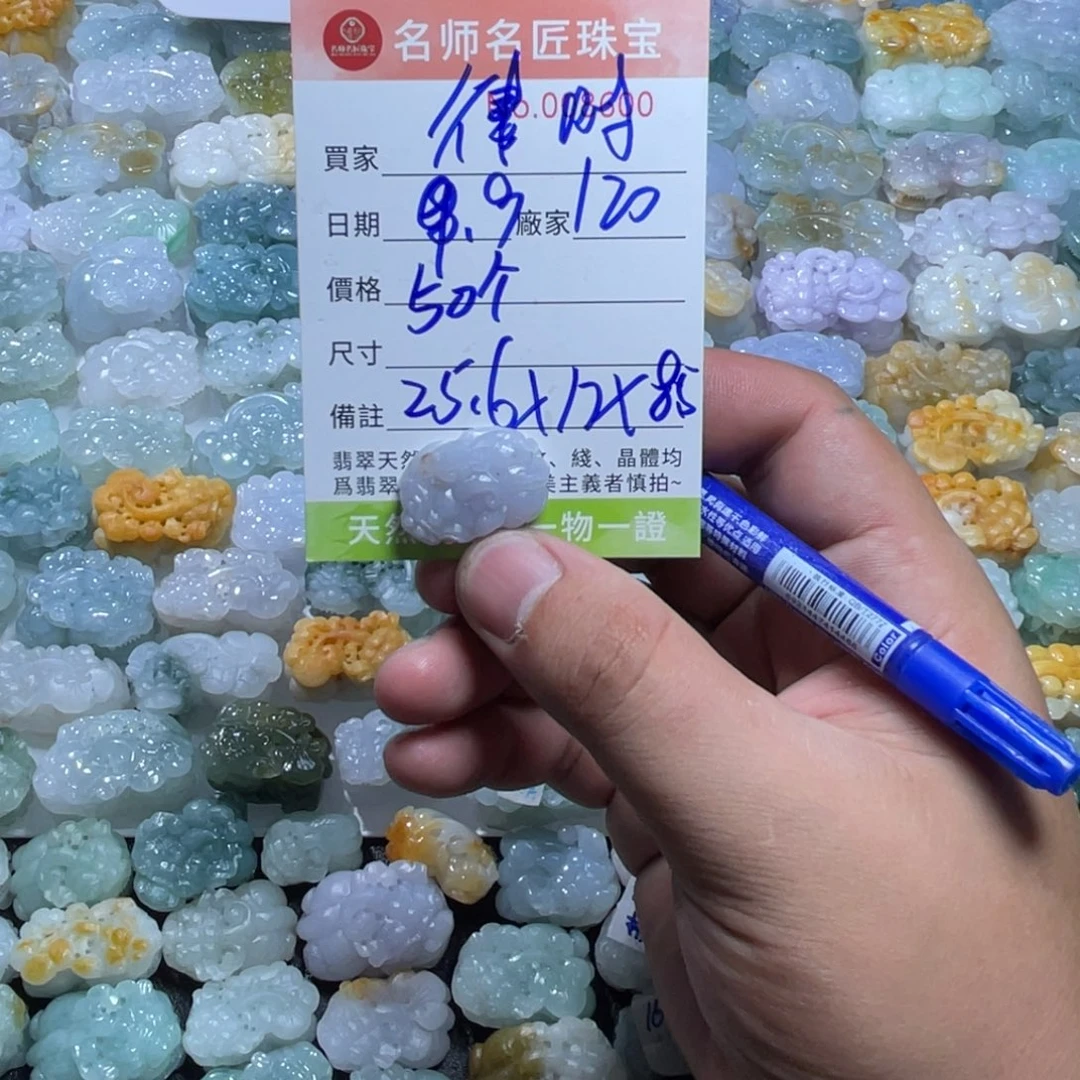 名师名匠珠宝
No.008600
買家
日期 9.9 廠家 120
價格 50个
尺寸
備註 25.6x12x8.5
翡翠天然、綫、晶體均
爲翡翠美主義者慎拍~
天然一物一證
Color